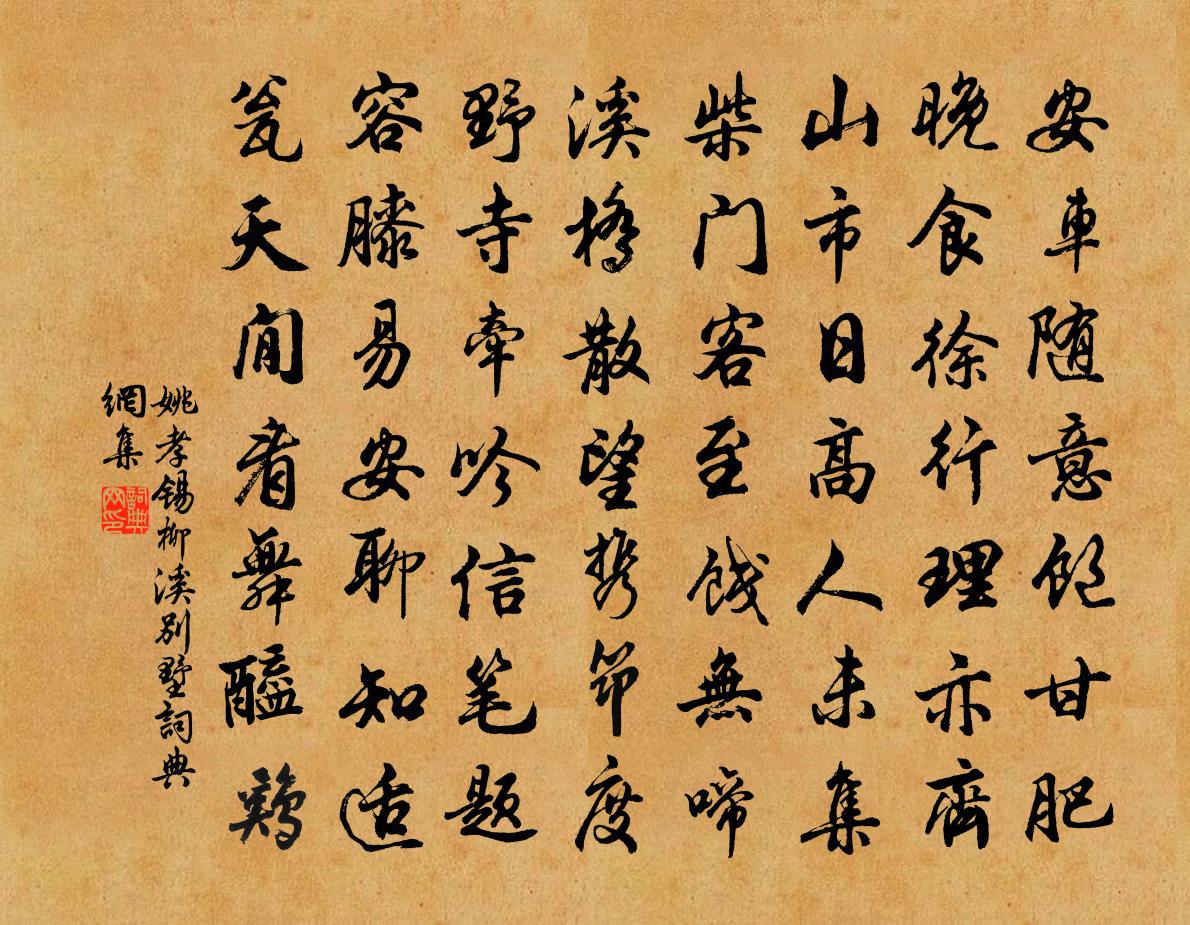 安車随意饱甘肥
晚食徐行理亦齊
山市日高人未集
柴门客至無啼
溪橋散望携筇度
野寺牽吟信笔题
容膝易安聊知适
瓮天閒看舞醯鷄
姚孝锡柳溪别墅詞典
網集
詞典网印